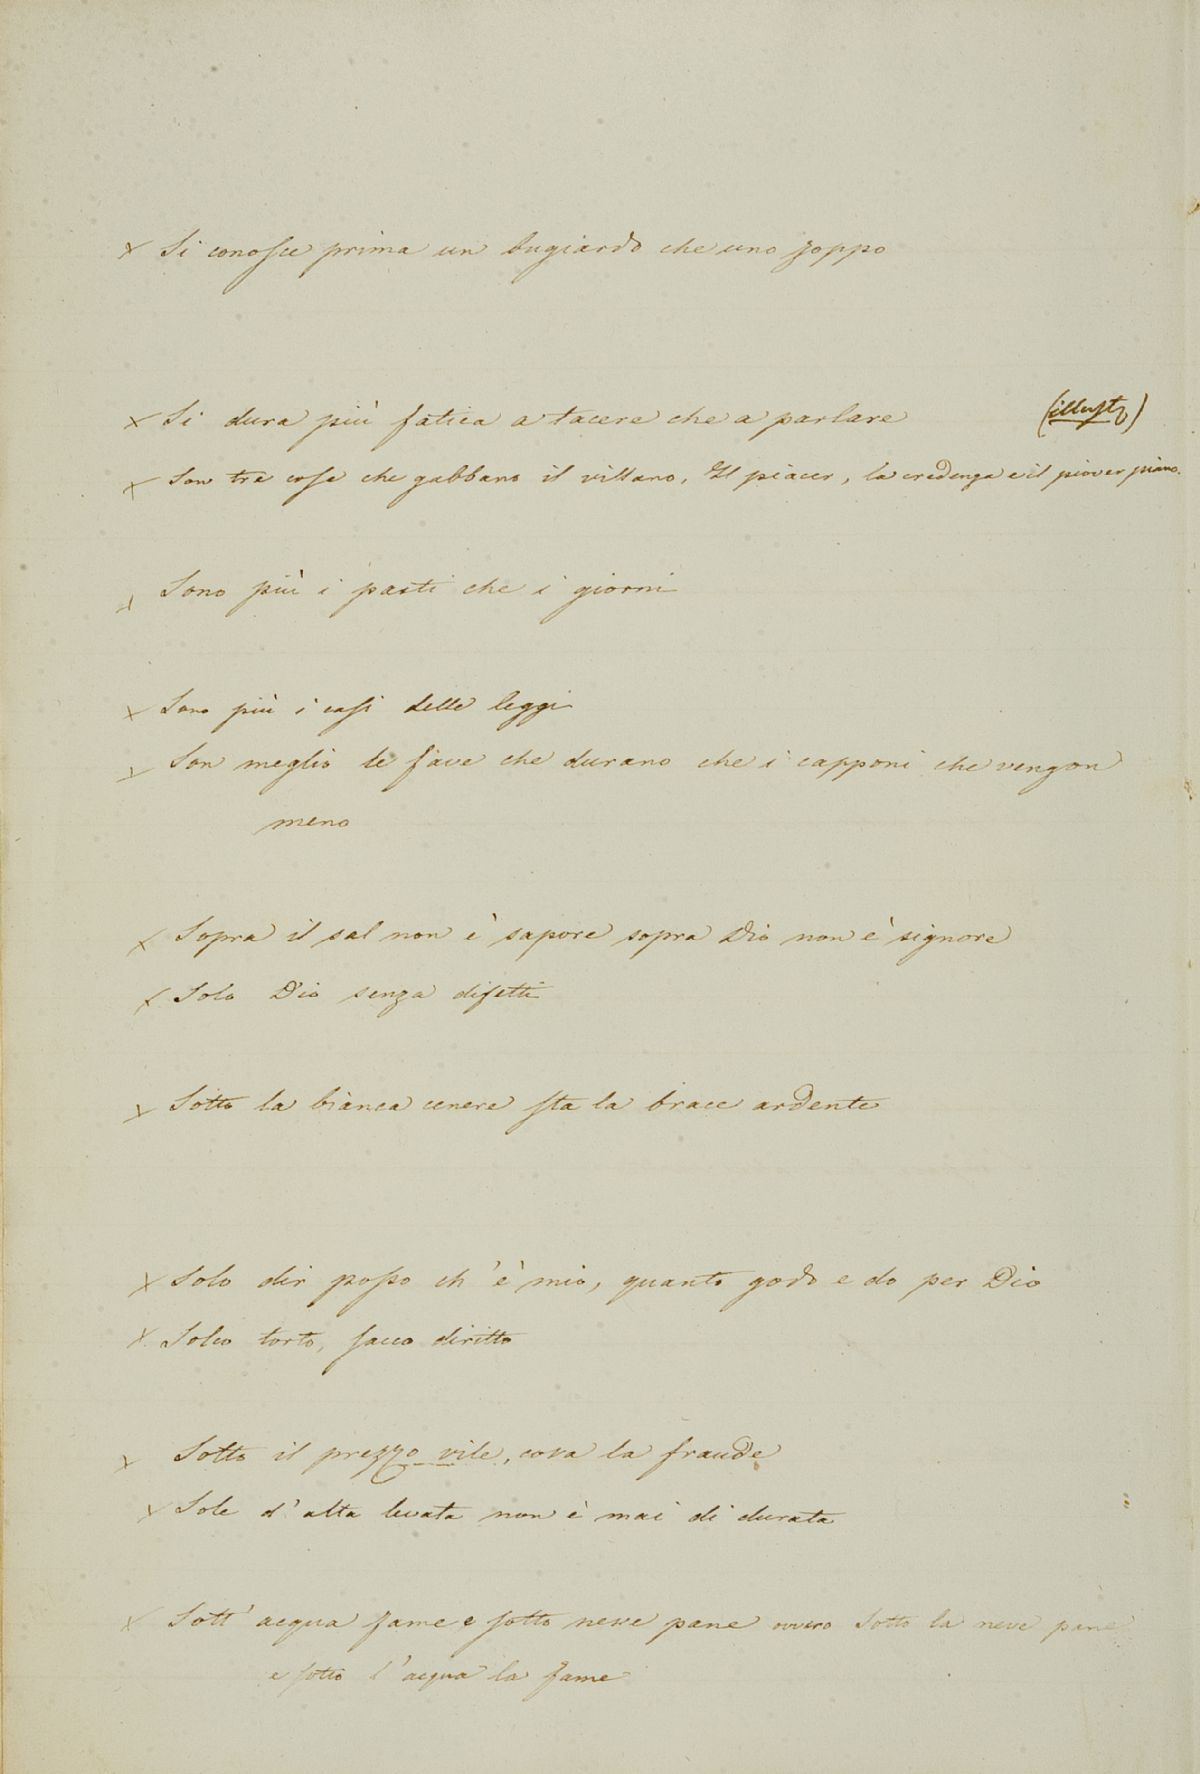 x Si conosce prima un bugiardo che uno zoppo
x Si dura più fatica a tacere che a parlare (illustr)
x Son tre cose che gabbano il villano, Il piacer, la credenza e il piover piano.
x Sono più i pasti che i giorni
x Sono più i casi delle leggi
x Son meglio le fave che durano che i capponi che vengon
meno
x Sopra il sal non è sapore sopra Dio non è signore
x Solo Dio senza difetti
x Sotto la bianca cenere sta la brace ardente
x Solo dir posso ch'è mio, quanto godo e do per Dio
x Solco torto, sacco diritto
x Sotto il prezzo vile, cova la fraude
x Sole d'alta levata non è mai di durata
x Sott'acqua fame e sotto neve pane ovvero Sotto la neve pane
e sotto l'acqua la fame